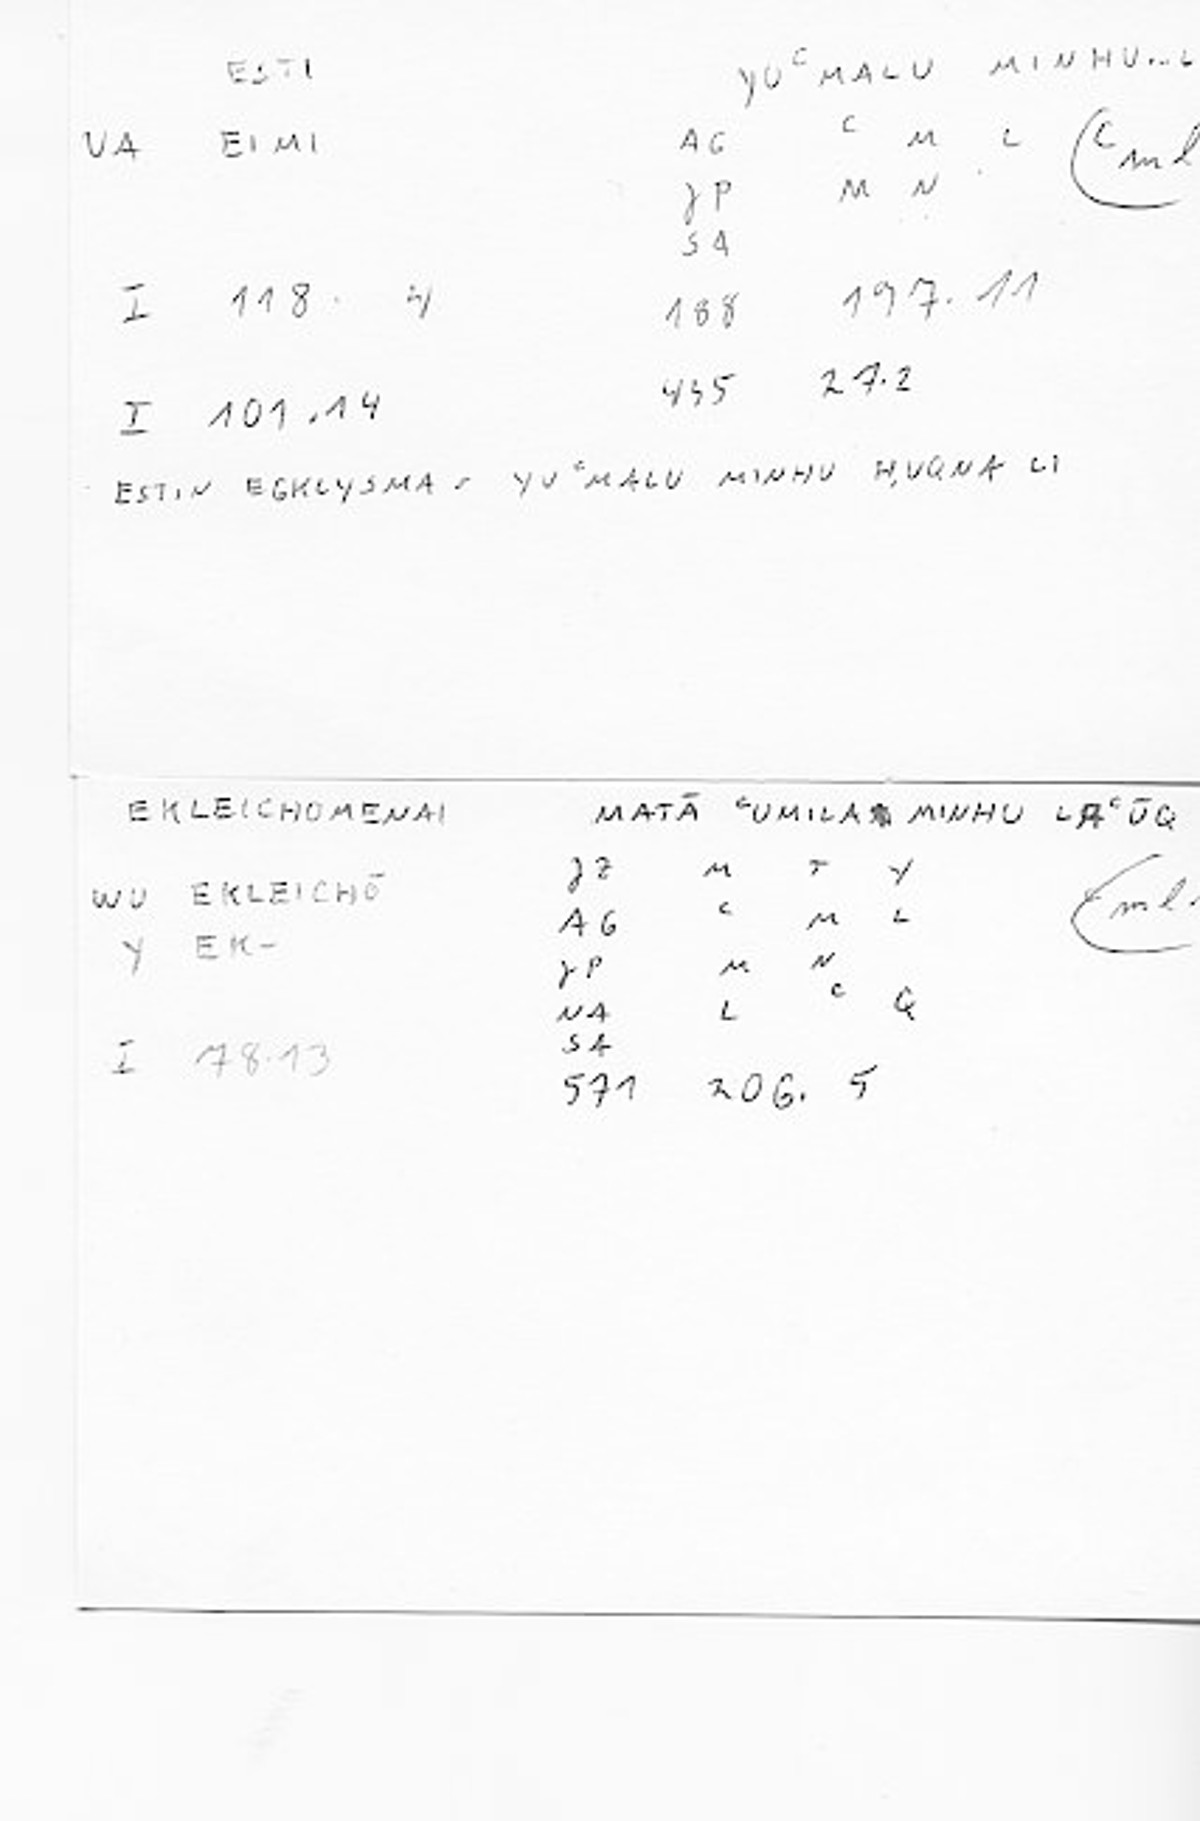 ESTI YUᶜMALU MINHU...L
VA EIMI AG ᶜ M L (ᶜml
γP M N
SA
I 118. 4 188 197.11
I 101.14 445 27.2
ESTIN EGKLYSMA - YUᶜMALU MINHU ḤUQNA LI
EKLEICHOMENAI MATĀ ᶜUMILA MINHU LAᶜŪQ
WU EKLEICHŌ γZ M T Y (ᶜml
Y EK- AG ᶜ M L
γP M N
NA L ᶜ Q
I 78.13 SA
571 206. 5